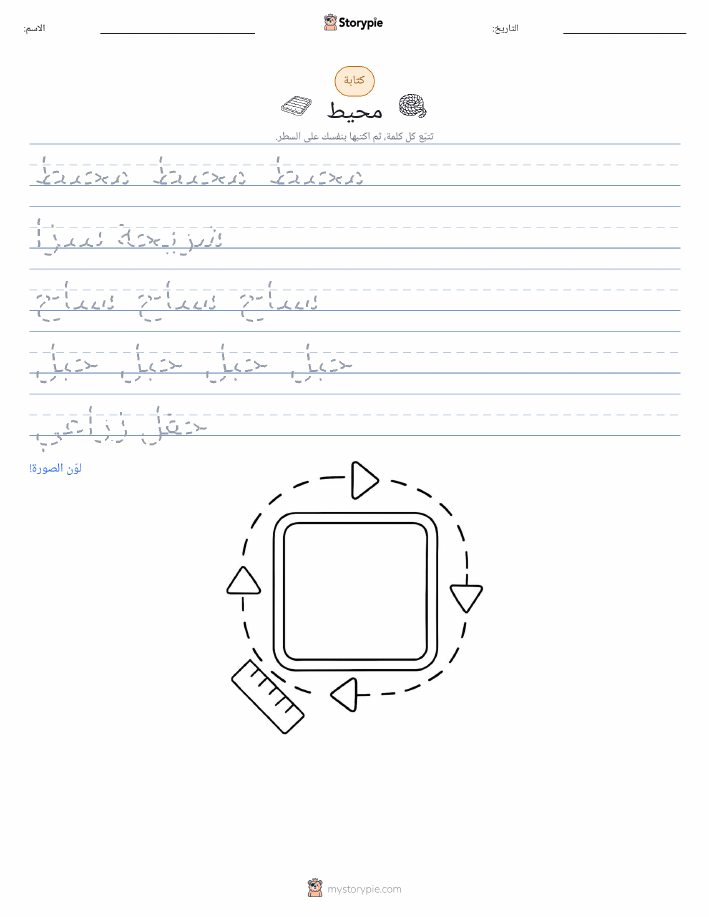 الاسم:
Storypie
التاريخ:
كتابة
محيط
تتبّع كل كلمة، ثم اكتبها بنفسك على السطر.
محيط محيط محيط
سياج سياج سياج
حبل حبل حبل حبل
حقل زراعي
لوّن الصورة!
mystorypie.com